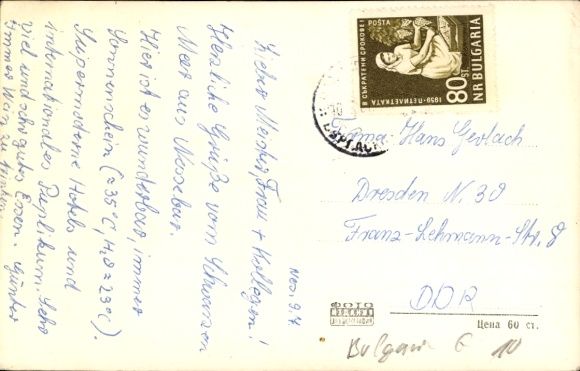 Nes. 9.7.
Lieber Meister, Frau + Kollegen!
Herzliche Grüße vom Schwarzen
Meer aus Nessebar.
Hier ist es wunderbar, immer
Sonnenschein (≈35°C, H₂O ≈ 23°C).
Supermoderne Hotels und
internationales Publikum. Sehr
viel und sehr gutes Essen. Günter
immer was zu trinken.
В СЪКРАТЕНИ СРОКОВЕ!
POŠTA
1959-ПЕТИЛЕТКАТА
80 ST.
NR BULGARIA
Firma Hans Gerlach
Dresden N. 30
Franz-Lehmann-Str. 8
DDR
ФОТО
Цена 60 ст.
Bulgarien 6 10